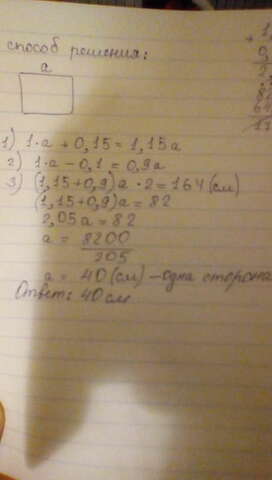 способ решения:
a
1) 1·a + 0,15 = 1,15a
2) 1·a - 0,1 = 0,9a
3) (1,15+0,9)a · 2 = 164 (см)
(1,15+0,9)a = 82
2,05a = 82
a = 8200
205
a = 40 (см) - одна сторона
Ответ: 40 см